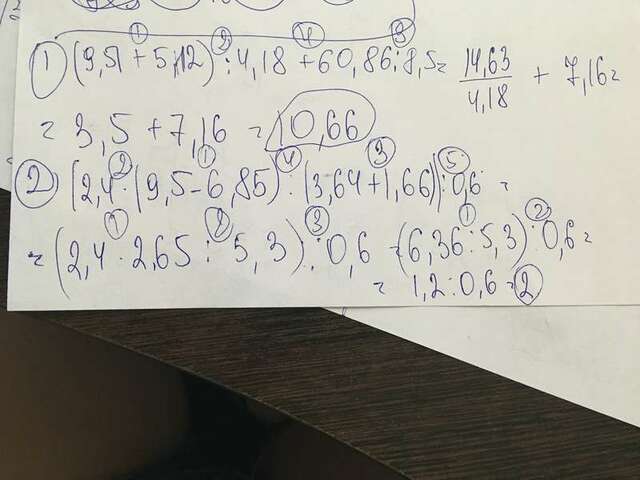 ① ② ④ ③
1 (9,51+5,12):4,18+60,86:8,5= 14,63/4,18 + 7,16=
= 3,5+7,16 = 10,66
② ① ④ ③ ⑤
2 (2,4·(9,5-6,85):(3,64+1,66):0,6=
① ② ③ ① ②
= (2,4·2,65:5,3):0,6 = (6,36:5,3):0,6=
= 1,2:0,6=2